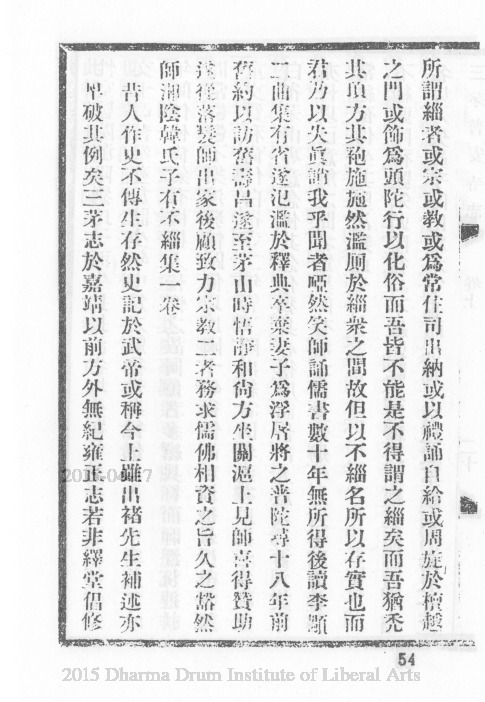 所謂緇者或宗或教或爲常住司出納或以禮誦自給或周旋於檀越
之門或飾爲頭陀行以化俗而吾皆不能是不得謂之緇矣而吾猶禿
其頂方其袍施施然濫厠於緇衆之間故但以不緇名所以存實也而
君乃以失眞誚我乎聞者啞然笑師誦儒書數十年無所得後讀李顒
二曲集有省遂氾濫於釋典卒棄妻子爲浮居將之普陀尋十八年前
舊約以訪耆壽昌遂至茅山時悟靜和尙方坐關滬上見師喜得贊助
遂從落髮師出家後顧致力宗教二者務求儒佛相資之旨久之豁然
師湘陰韓氏子有不緇集一卷
昔人作史不傳生存然史記於武帝或稱今上雖出褚先生補述亦
早破其例矣三茅志於嘉靖以前方外無紀雍正志若非繹堂倡修
54
2015 Dharma Drum Institute of Liberal Arts